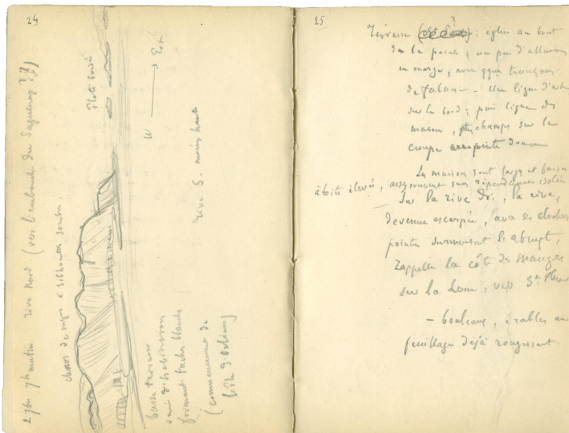 24
27bre 7h matin rive nord (vers l'embouch. du Saguenay ??)
chaos de neiges à silhouettes sombres.
Ilots boisés
W → Est
rive S. moins haute
basse terrasse
semi d'habitations
formant taches blanches
(commencement de
l'Ile d'Orléans)
25
Terrasse : église au bout
de la pointe, un peu d'alluvions
en marge, avec qques tronçons
de falaise - Une ligne d'arbres
sur le bord ; puis ligne de
maisons, puis champs sur la
croupe
Les maisons sont larges et basses
à toits élevés, assez souvent sans dépendances isolées
Sur la rive dr., la rive,
devenue escarpée, avec ses clochers
pointus surmontant le abrupt,
rappelle la côte de Mauges
sur la Loire, vers St
- bouleaux, érables au
feuillage déjà rougissant